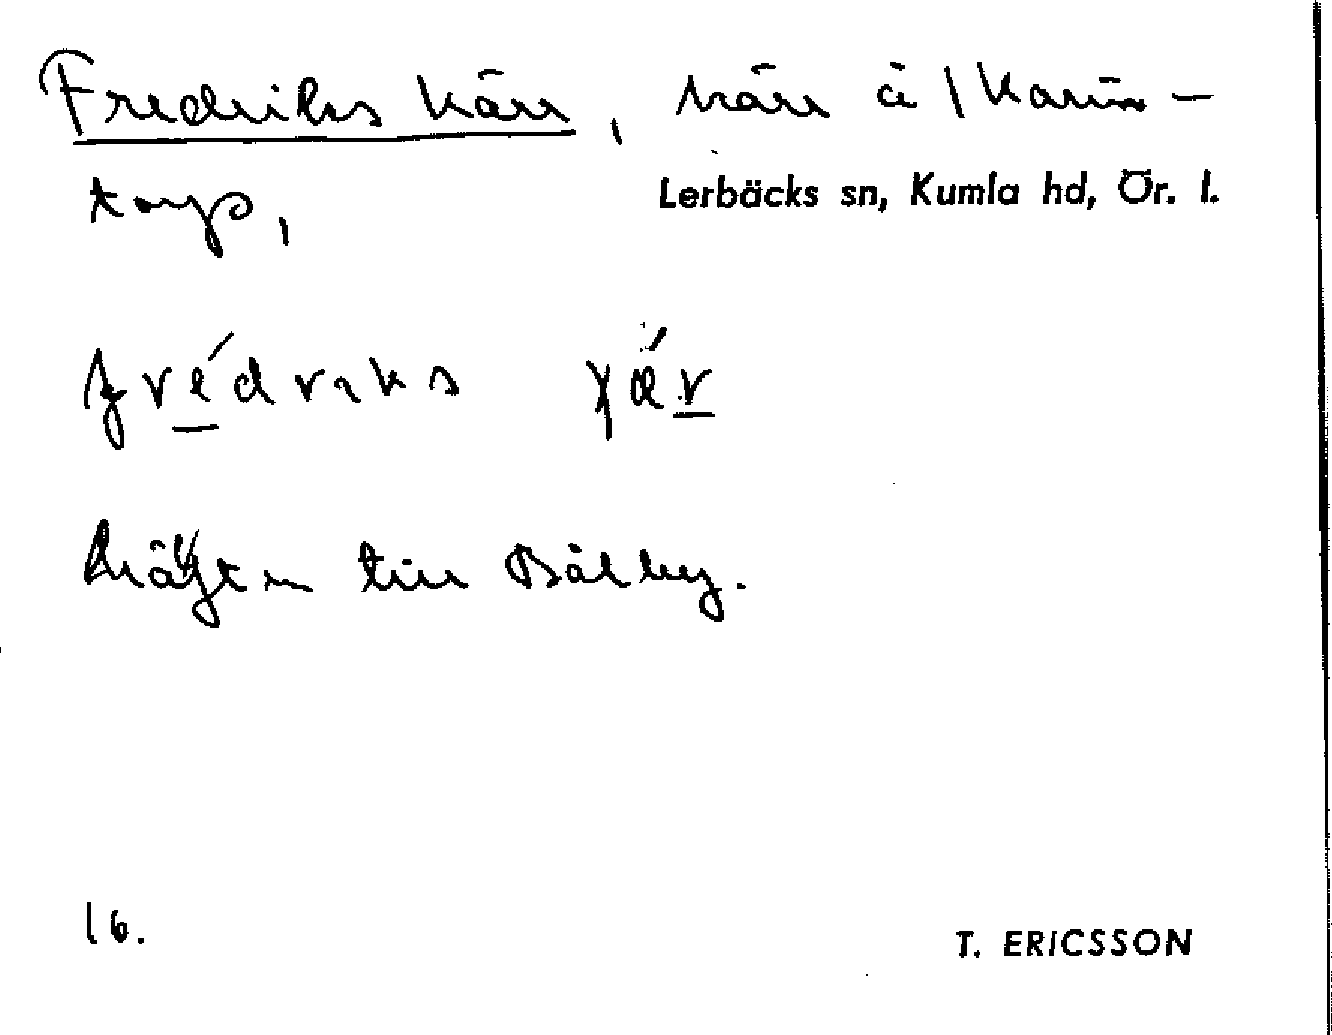 Fredriks kärr, kärr å 1 Karin-
torp,
Lerbäcks sn, Kumla hd, Ör. l.
frédriks χǽr
till Bälby.
16.
T. ERICSSON